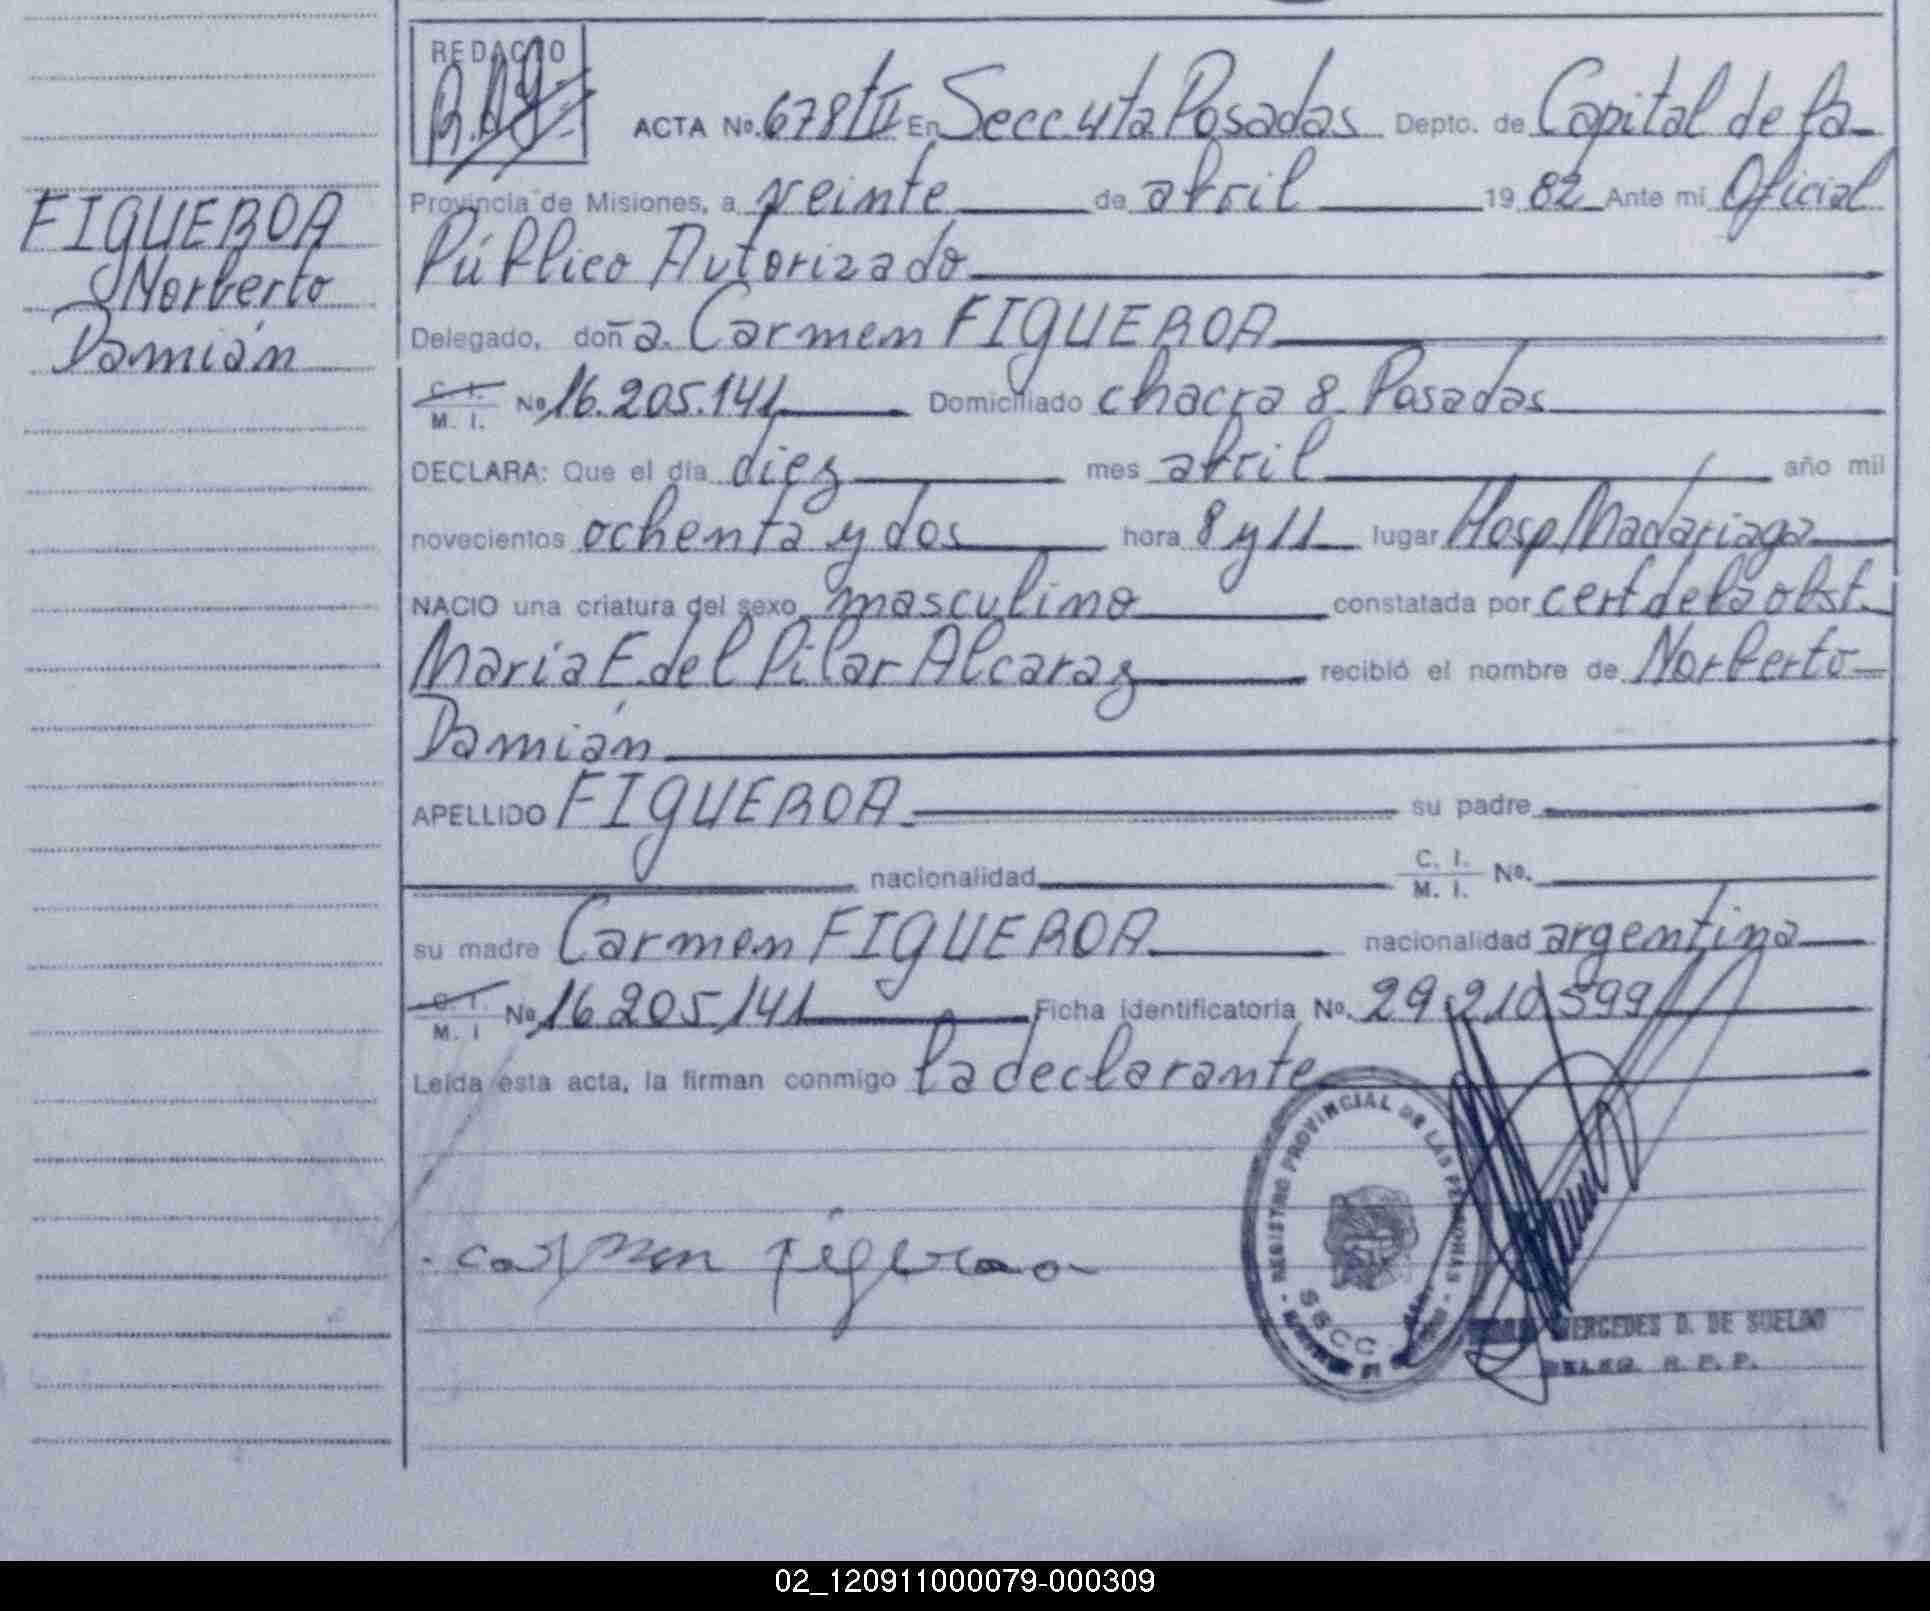 REDACTO
ACTA No. 678 tII En Secc. 4ta. Posadas Depto. de Capital de la
Provincia de Misiones, a veinte de abril 1982 Ante mi Oficial
Público Autorizado
FIGUEROA
Norberto
Damián
Delegado, doña. Carmen FIGUEROA
C. I.
M. I. No 16.205.141 Domiciliado chacra 8 Posadas
DECLARA: Que el día diez mes abril año mil
novecientos ochenta y dos hora 8 y 11 lugar Hosp Madariaga
NACIO una criatura del sexo masculino constatada por cert de la obst.
María E. del Pilar Alcaraz recibió el nombre de Norberto
Damián
APELLIDO FIGUEROA su padre
nacionalidad C. I. M. I. No.
su madre Carmen FIGUEROA nacionalidad argentina
C. I.
M. I No 16 205 141 Ficha identificatoria No. 29 210 599
Leída esta acta, la firman conmigo la declarante
carmen figeroa
REGISTRO PROVINCIAL DE LAS PERSONAS
SECC
MERCEDES D. DE SUELDO
DELEG. R. P. P.
02_120911000079-000309